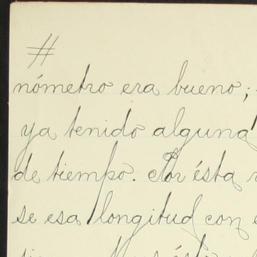 #
nómetro era bueno;
ya tenido alguna
de tiempo. Por ésta
se esa longitud con